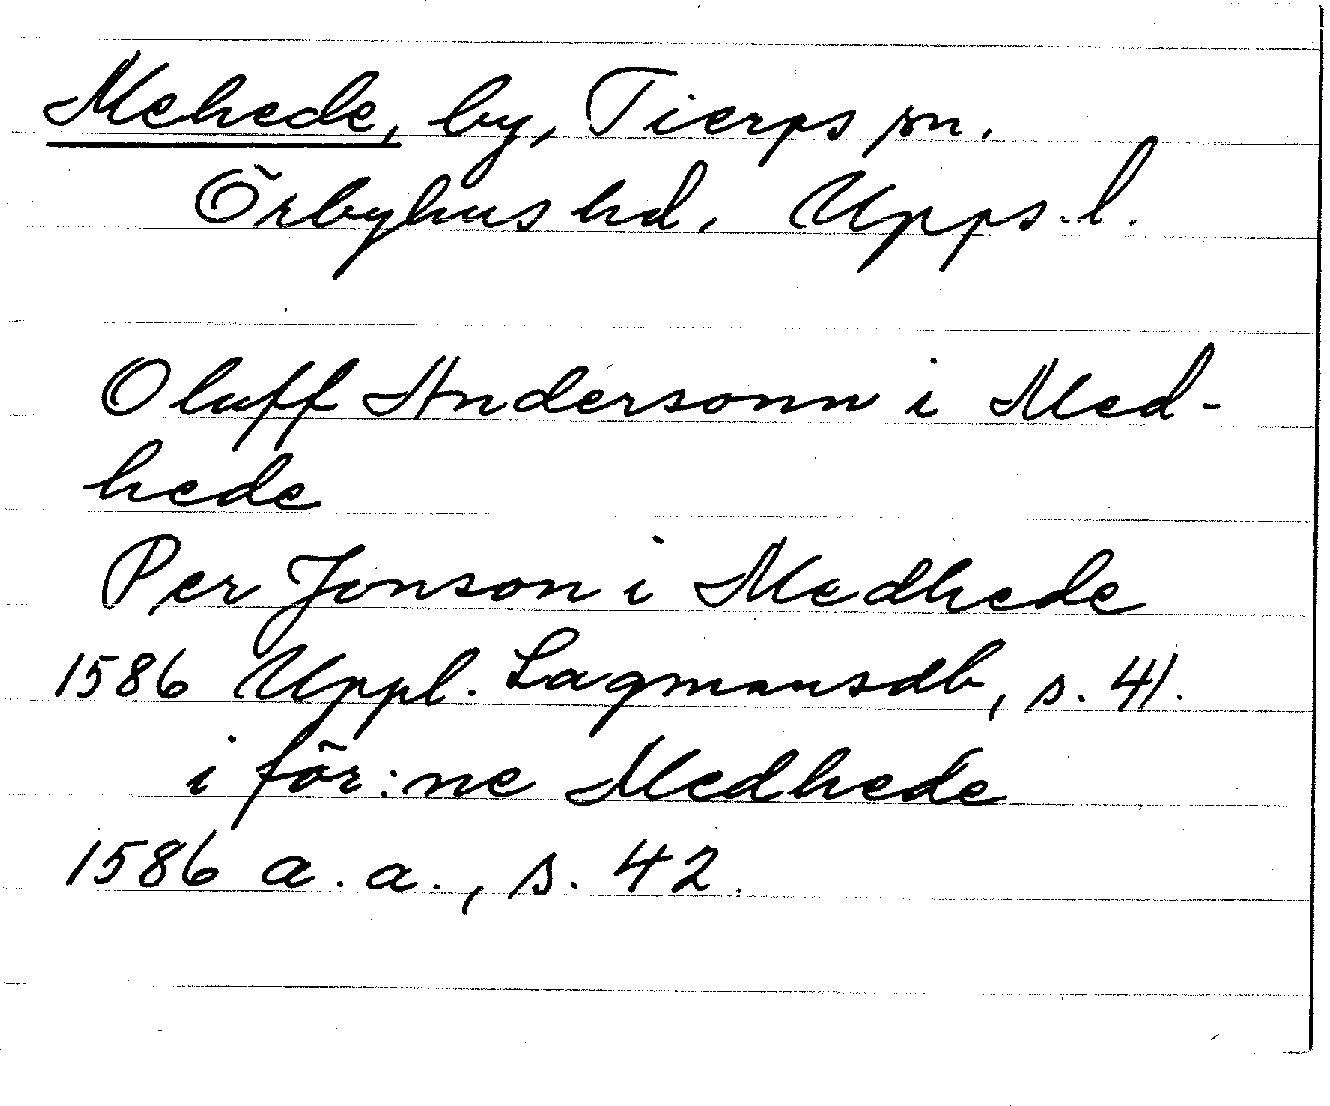 Mehede, by, Tierps sn.
Örbyhus hd. Upps. l.
Oluff Andersonn i Med-
hede
Per Jonson i Medhede
1586 Uppl. Lagmansdb, s. 41.
i för:ne Medhede
1586 a. a., s. 42.